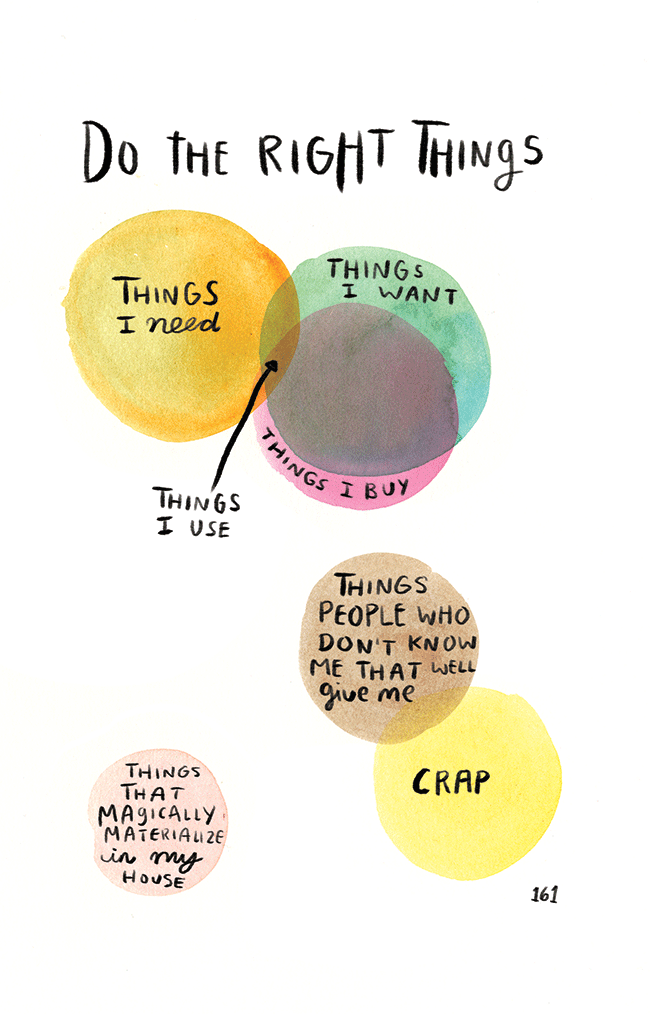 Do THE RIGHT THINgS
THINGS
I need
THINGS
I WANT
THINGS I BUY
THINGS
I USE
THINGS
PEOPLE WHO
DON'T KNOW
ME THAT WELL
give me
CRAP
THINGS
THAT
MAgICALLY
MATERIALIZE
in my
HOUSE
161